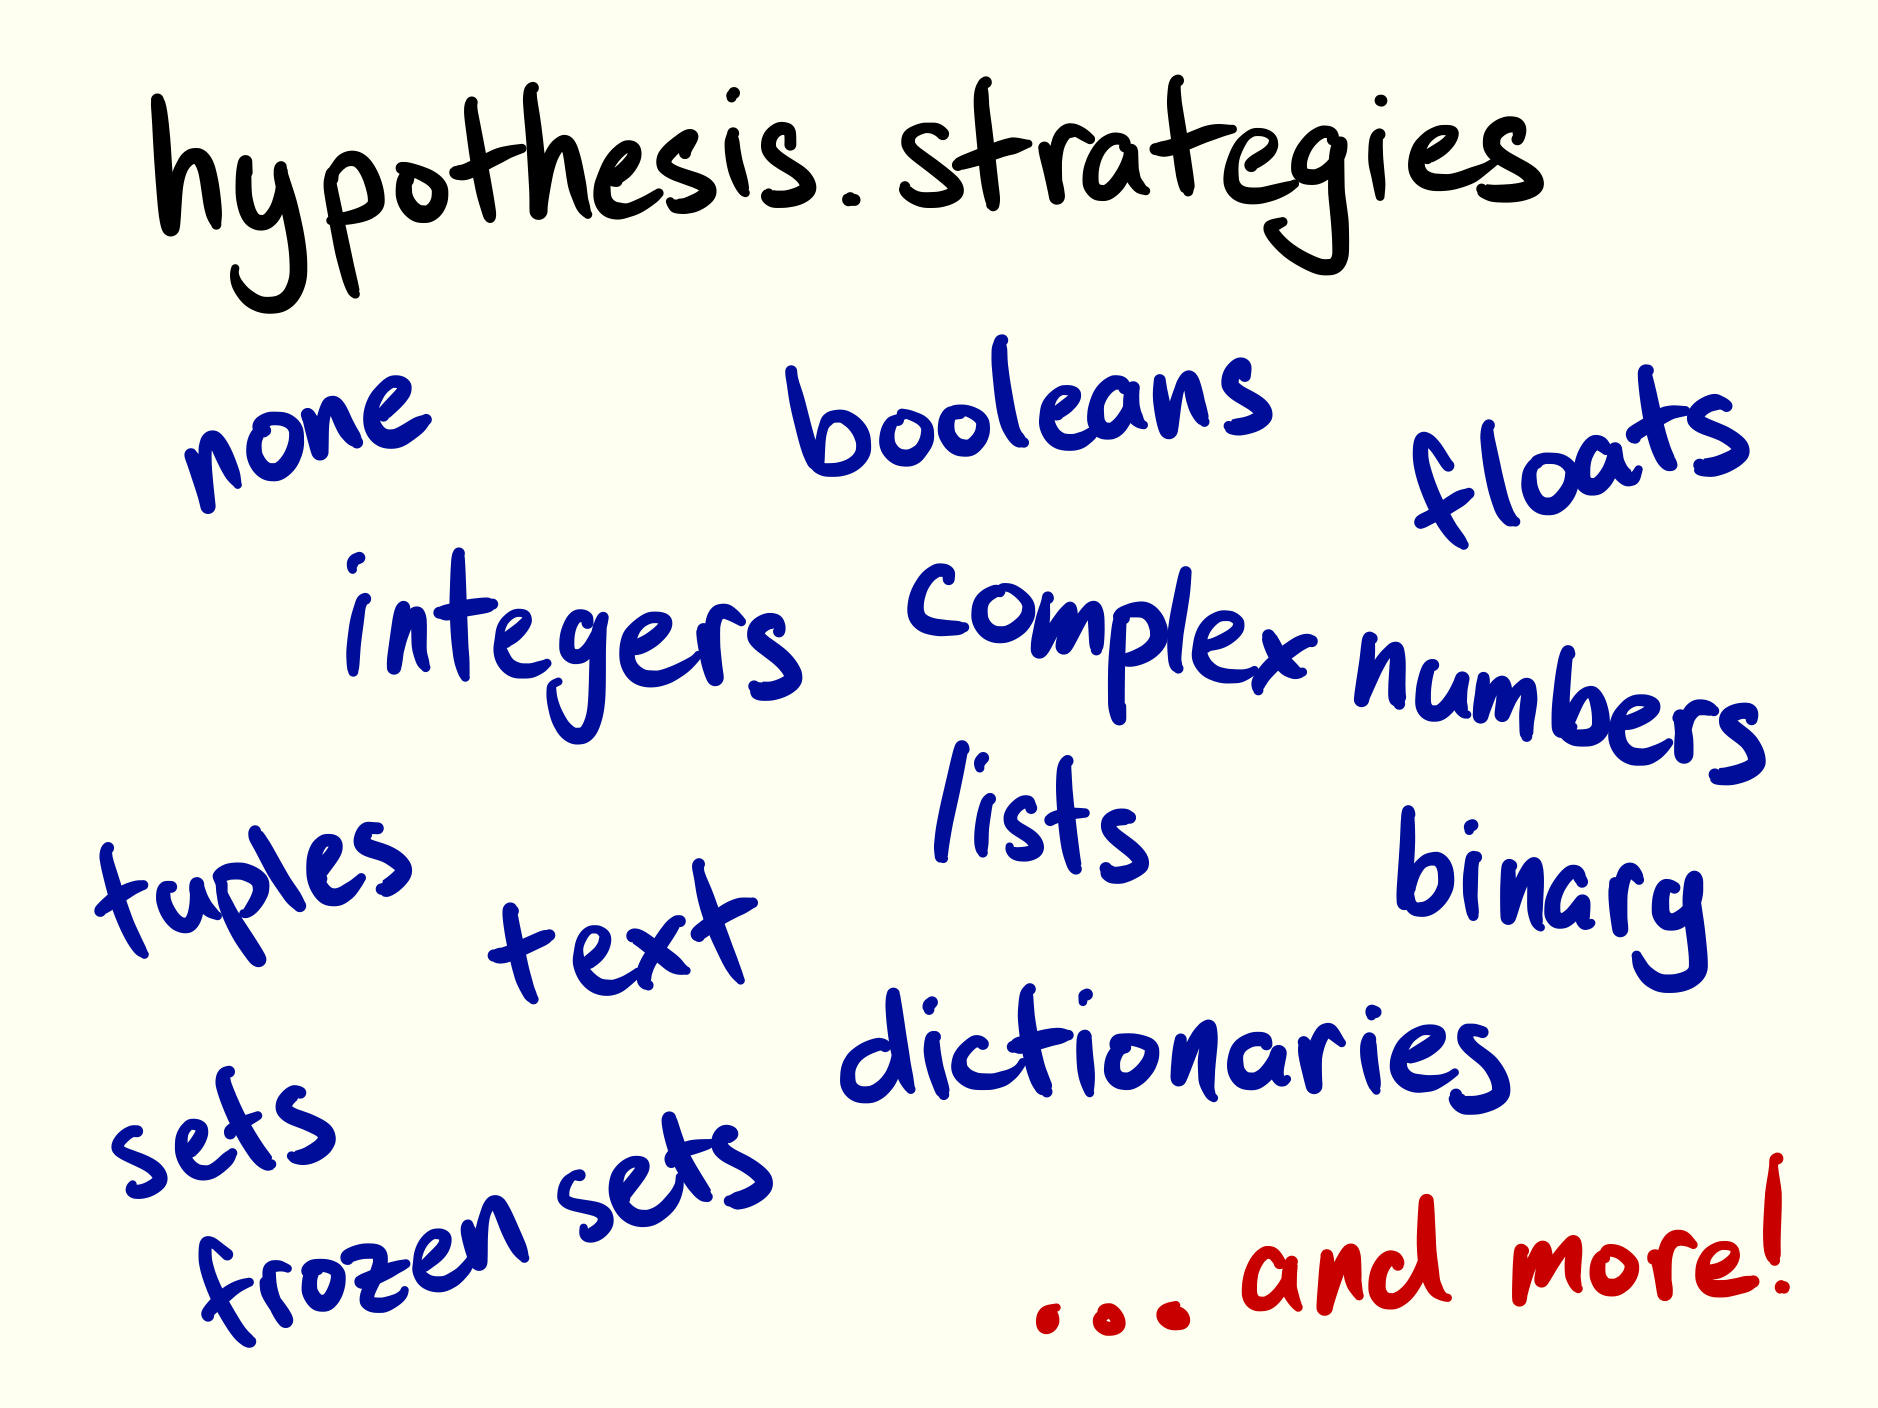 hypothesis.strategies
none
booleans
floats
integers
complex numbers
lists
tuples
text
binary
dictionaries
sets
frozen sets
... and more!